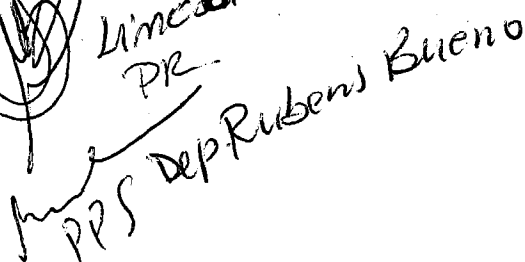 PR
PPS Dep. Rubens Bueno